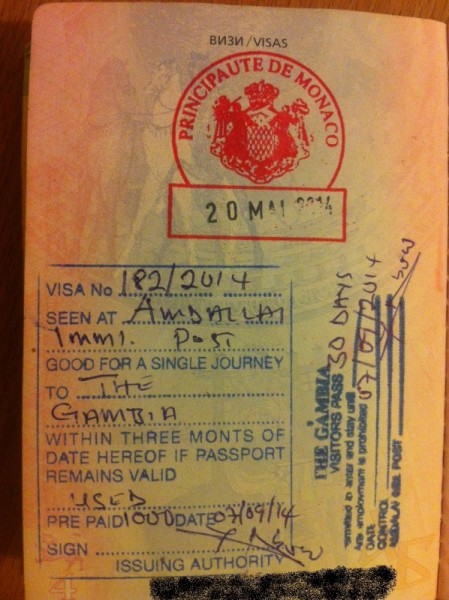 ВИЗИ / VISAS
PRINCIPAUTE DE MONACO
20 MAI 2014
VISA No 182/2014
SEEN AT AMDALLAI
Immi. Post
GOOD FOR A SINGLE JOURNEY
TO THE
GAMBIA
WITHIN THREE MONTS OF
DATE HEREOF IF PASSPORT
REMAINS VALID
USED
PRE PAID 1000 DATE 07/09/14
SIGN
ISSUING AUTHORITY
THE GAMBIA
VISITORS PASS 30 DAYS
to enter and stay until
employment is prohibited
DATE
CONTROL
POST